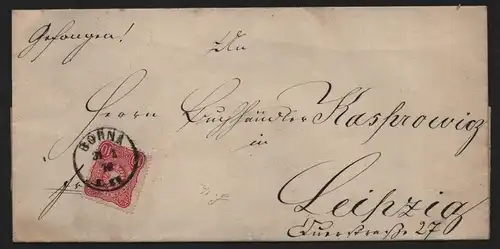 Gefangen!
An
Herrn Buchhändler Kasprowicz
in
fr
Leipzig
Querstraße 27
BORNA